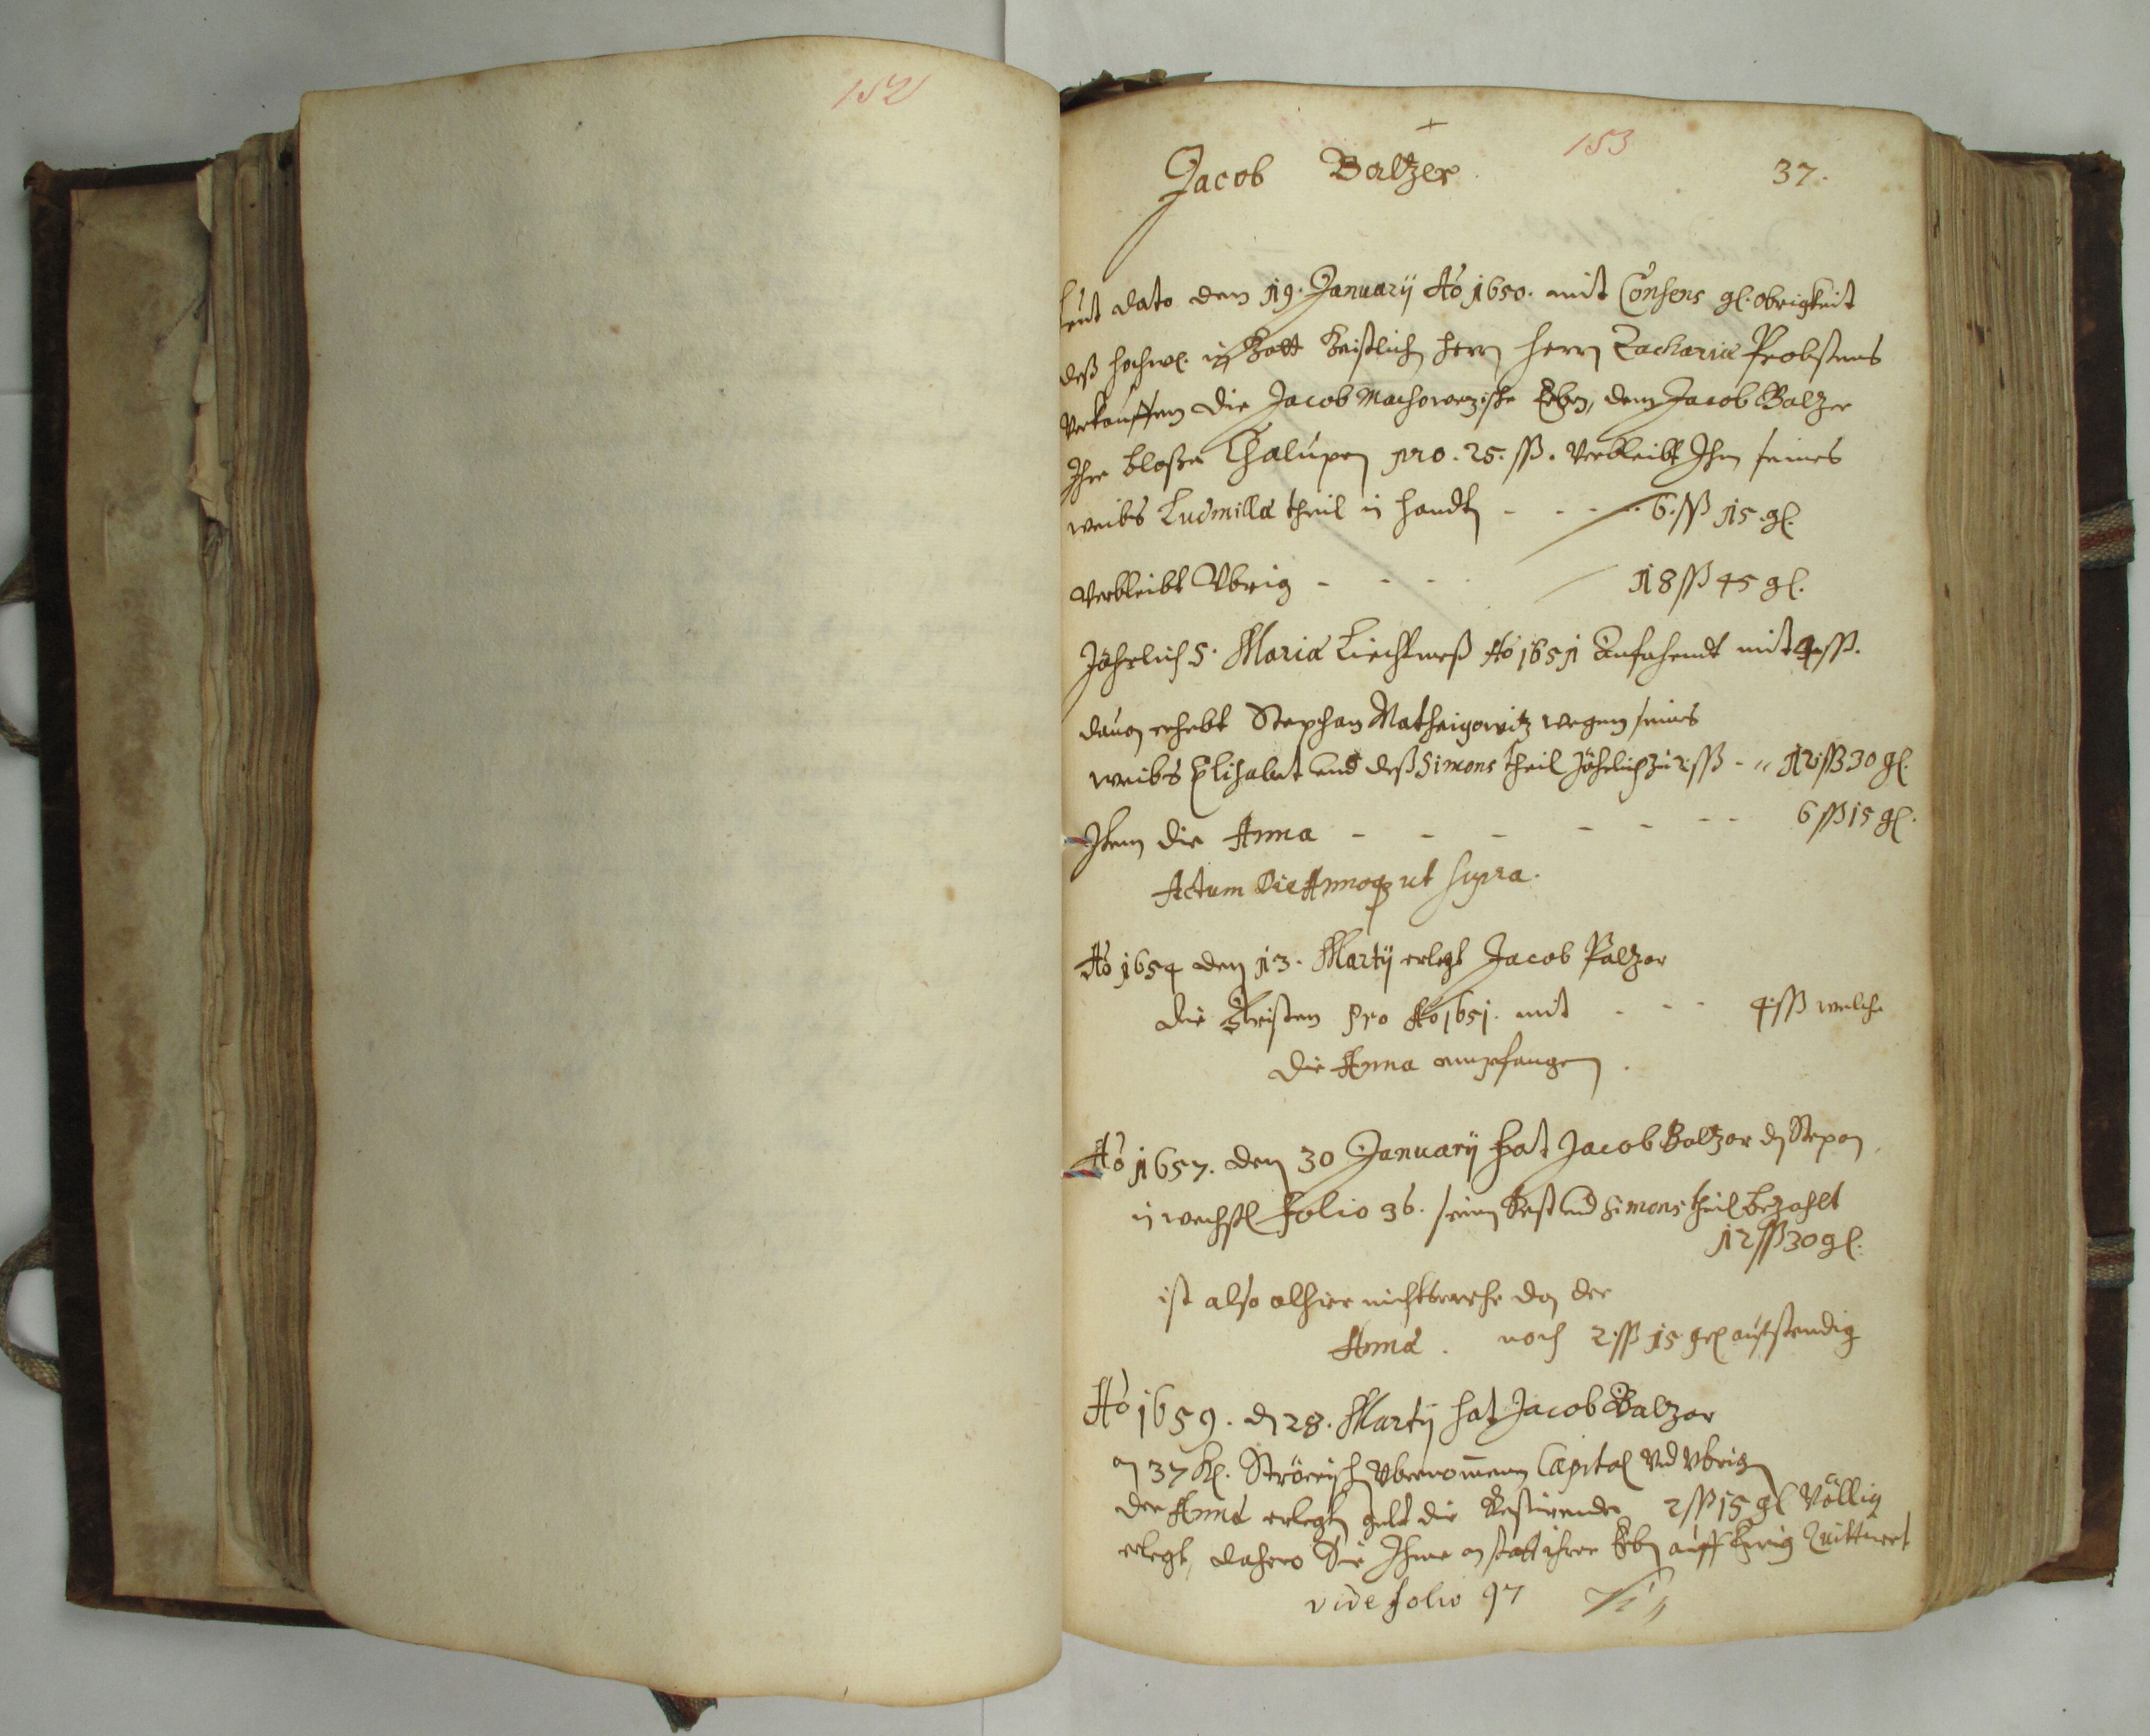 152
153
Jacob Baltzer 37.
Heut dato den 19. January Aõ 1650. mit Consens gl. obrigkeit
deß hochw. in Gott Geistlich herrn herrn Zachariæ Probstens
Verkauffen die Jacob Erben, dem Jacob Baltzer
Ihre bloße Chalupen pro. 25. ss. Verbleibt Ihm seines
weibs Ludmilla theil in handt - - - 6. ss 15 gl.
Verbleibt Vbrig - - - 18 ss 45 gl.
Jährlich S. Maria Liechtmeß Aõ 1651 Anfahent mit 4 ss.
dauon erhebt Stephan Matheigowitz wegen seines
weibs Elisabet und deß Simons theil Jährlich zu 2 ss - " 12 ss 30 gl.
Item die Anna - - - - - - - 6 ss 15 gl.
Actum Die Annoq ut supra.
Aõ 1654 den 13. Martÿ erlegt Jacob Paltzer
die fristen pro Aõ 1651. mit - - 4 ss welche
die Anna empfangen.
Aõ 1657. den 30 January hat Jacob Baltzer dn Stepan
in wechsl Folio 36. seinen Rest und Simons theil bezahlt
12 ss 30 gl.
ist also alhier nichts mehr den der
Anna. noch 2 ss 15 gl außstendig
Aõ 1659. dn 28. Martÿ hat Jacob Baltzer
an 37 Kl. Vbernomenen Capital Vnd Vbrigen
der Anna erlegten gelt die Restirende 2 ss 15 gl Völlig
erlegt, dahero Sie Ihme an statt ihrer Erben auff Ewig Quittiert
vide folio 97